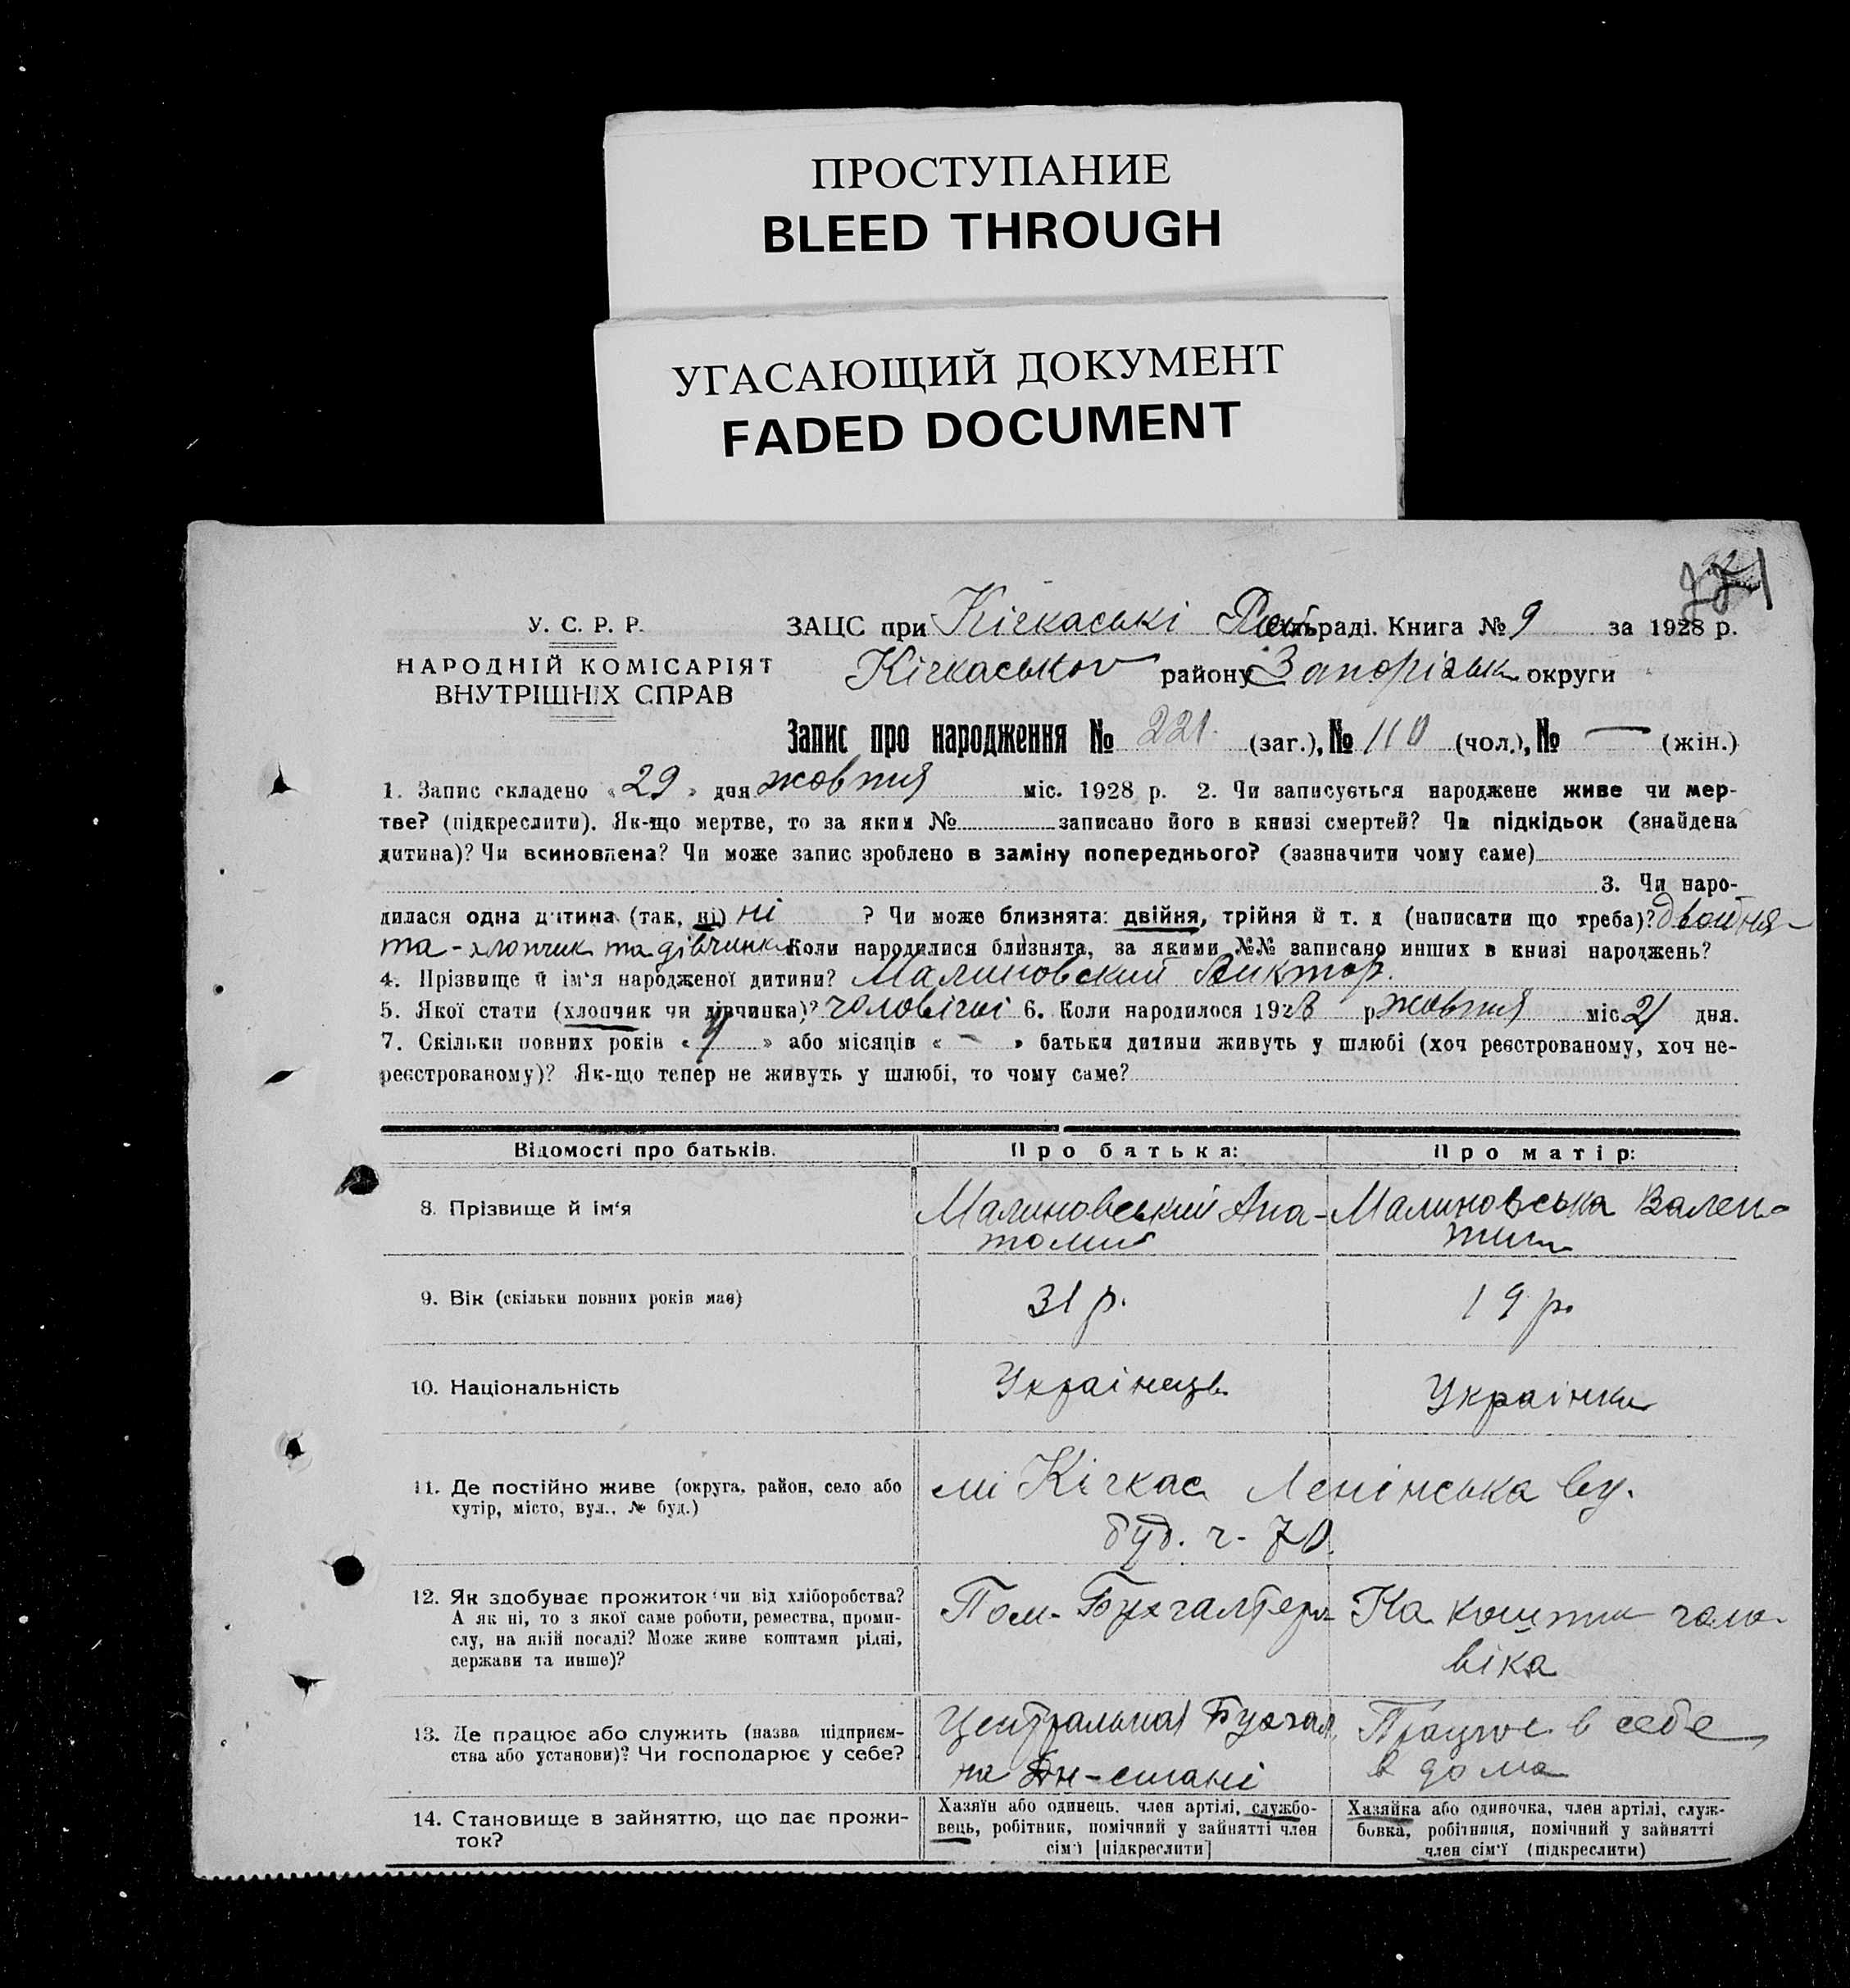 ПРОСТУПАНИЕ
BLEED THROUGH
УГАСАЮЩИЙ ДОКУМЕНТ
FADED DOCUMENT
221
У. С. Р. Р.
НАРОДНІЙ КОМІСАРІЯТ
ВНУТРІШНІХ СПРАВ
ЗАЦС при Кічкаські раді. Книга № 9 за 1928 р.
Кічкаськ району Запорізьк округи
Запис про народження № 221. (заг.), № 110 (чол.), № — (жін.)
1. Запис складено « 29 » дня жовтня міс. 1928 р. 2. Чи записується народжене живе чи мер-
тве? (підкреслити). Як-що мертве, то за яким № записано його в книзі смертей? Чи підкідьок (знайдена
дитина)? Чи всиновлена? Чи може запис зроблено в заміну попереднього? (зазначити чому саме)
3. Чи наро-
дилася одна дитина (так, ні) ні ? Чи може близнята: двійня, трійня й т. д (написати що треба)? двойня-
та - хлопчик та дівчинка Коли народилися близнята, за якими №№ записано инших в книзі народжень?
4. Прізвище й ім'я народженої дитини? Малиновский Виктор.
5. Якої стати (хлопчик чи дівчинка)? чоловічої 6. Коли народилося 1928 р жовтня міс 21 дня.
7. Скільки повних років « » або місяців « – » батьки дитини живуть у шлюбі (хоч реєстрованому, хоч не-
реєстрованому)? Як-що тепер не живуть у шлюбі, то чому саме?
Відомості про батьків.
Про батька:
Про матір:
8. Прізвище й ім'я
Малиновський Ана-
толий
Малиновська Вален-
тина
9. Вік (скільки повних років має)
31 р.
19 р.
10. Національність
Українець
Українка
11. Де постійно живе (округа, район, село або
хутір, місто, вул., № буд.)
мі Кічкас Ленінська ву.
буд. ч- 70.
12. Як здобуває прожиток чи від хліборобства?
А як ні, то з якої саме роботи, ремества, проми-
слу, на якій посаді? Може живе коштами рідні,
держави та инше)?
Пом- Бухгалтера
На кошти чоло-
віка
13. Де працює або служить (назва підприєм-
ства або установи)? Чи господарює у себе?
Центральная Бухгал.
на Дн-стані
Працює в себе
в дома
14. Становище в зайняттю, що дає прожи-
ток?
Хазяїн або одинець. член артілі, службо-
вець, робітник, помічний у зайнятті член
сім'ї [підкреслити]
Хазяйка або одиночка, член артілі, служ-
бовка, робітниця, помічний у зайнятті
член сім'ї (підкреслити)